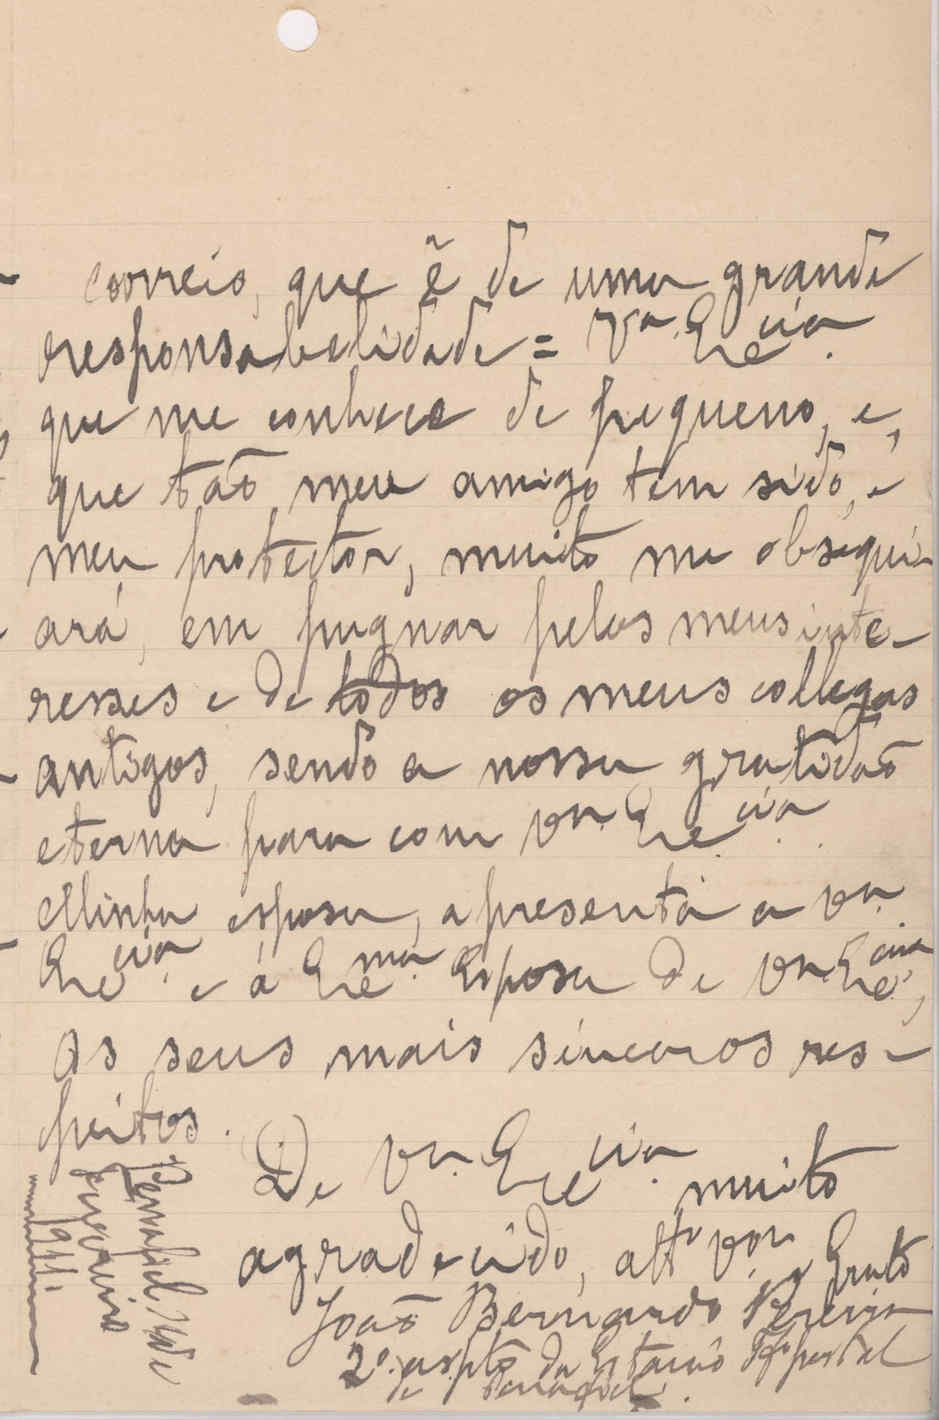 correio, que ẽ de uma grande
responsabelidade = Vª. Exᶜⁱᵃ.
que me conhece de piqueno, e,
que tão meu amigo tem sido, e
meu protector, muito me obsequi-
ará, em pugnar pelos meus inte-
resses e de todos os meus collegas
antigos, sendo a nossa gratidão
eterna para com Vª. Exᶜⁱᵃ.
Minha esposa, apresenta a Vª.
Exᶜⁱᵃ. e á Exᵐᵃ. Esposa de Vª Exᶜⁱᵃ.,
os seus mais sinceros res-
peitos.
De Vª. Exᶜⁱᵃ. muito
agradecido, attº vºʳ e Grato
João Bernardo Pereira
2º. aspᵗᵉ da Estação postal
de Penafiel.
Penafiel de
Fevereiro
1911.